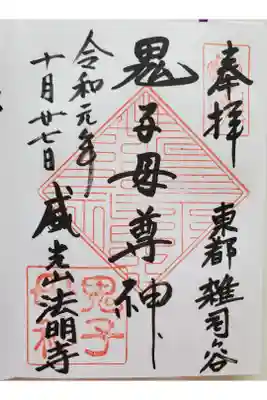 奉拝
東都 雑司ヶ谷
鬼子母尊神
令和元年
十月廿七日
威光山法明寺